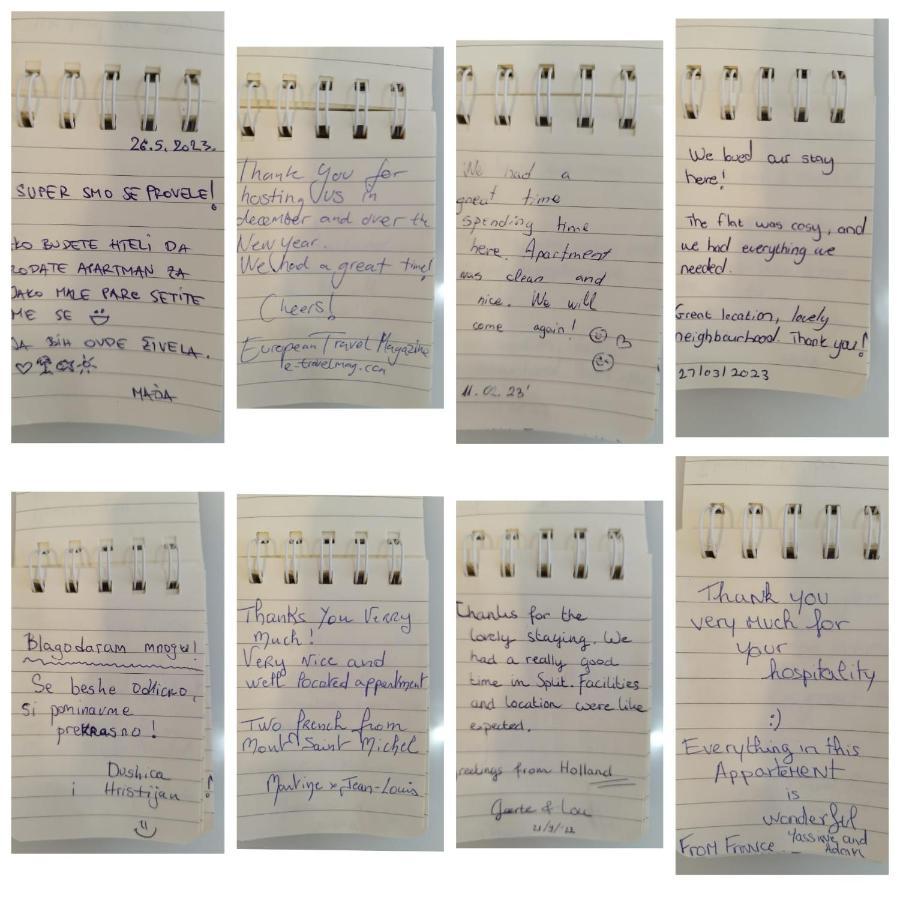 26.5.2023.
SUPER SMO SE PROVELE!
KO BUDETE HTELI DA
RODATE APARTMAN ZA
JAKO MALE PARE SETITE
ME SE
DA BIH OVDE ŽIVELA.
MAĐA
Thank you for
hosting us in
december and over the
New Year.
We had a great time!
Cheers!
European Travel Magazine
e-travelmag.com
We had a
great time
spending time
here. Apartment
was clean and
nice. We will
come again!
11.02.23'
We loved our stay
here!
The flat was cosy, and
we had everything we
needed.
Great location, lovely
neighbourhood. Thank you!
27/03/2023
Blagodaram mnogu!
Se beshe odlicno,
si pominavme
prekrasno!
Dushica
i Hristijan
Thanks you Verry
much!
Very nice and
well located appentment
Two french from
Mont Saint Michel
Martine x Jean-Louis
Thanks for the
lovely staying. We
had a really good
time in Split. Facilities
and location were like
expected.
reetings from Holland
& Lou
Thank you
very much for
your
hospitality
:)
Everything in this
Appartement
is
wonderful
Yassine and
From France Adam